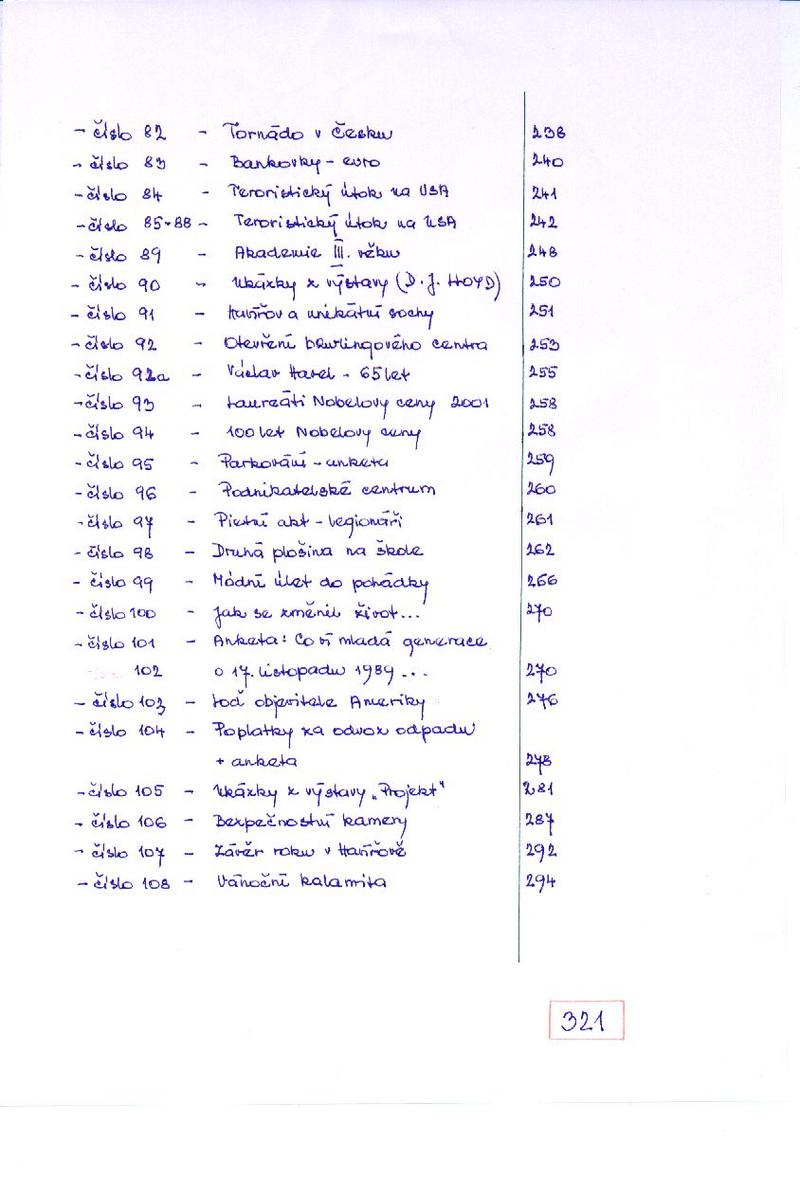 - číslo 82 - Tornádo v Česku 238
- číslo 83 - Bankovky - euro 240
- číslo 84 - Teroristický útok na USA 241
- číslo 85-88 - Teroristický útok na USA 242
- číslo 89 - Akademie III. věku 248
- číslo 90 - Ukázky z výstavy (D. J. HOYD) 250
- číslo 91 - Havířov a unikátní sochy 251
- číslo 92 - Otevření bowlingového centra 253
- číslo 92a - Václav Havel - 65 let 255
- číslo 93 - Laureáti Nobelovy ceny 2001 258
- číslo 94 - 100 let Nobelovy ceny 258
- číslo 95 - Parkování - anketa 259
- číslo 96 - Podnikatelské centrum 260
- číslo 97 - Pietní akt - legionáři 261
- číslo 98 - Druhá plošina na škole 262
- číslo 99 - Módní úlet do pohádky 266
- číslo 100 - Jak se změnil život... 270
- číslo 101 - Anketa: Co ví mladá generace
102 o 17. listopadu 1989... 270
- číslo 103 - Loď objevitele Ameriky 276
- číslo 104 - Poplatky za odvoz odpadu
+ anketa 278
- číslo 105 - Ukázky z výstavy „Projekt" 281
- číslo 106 - Bezpečnostní kamery 287
- číslo 107 - Závěr roku v Havířově 292
- číslo 108 - Vánoční kalamita 294
321